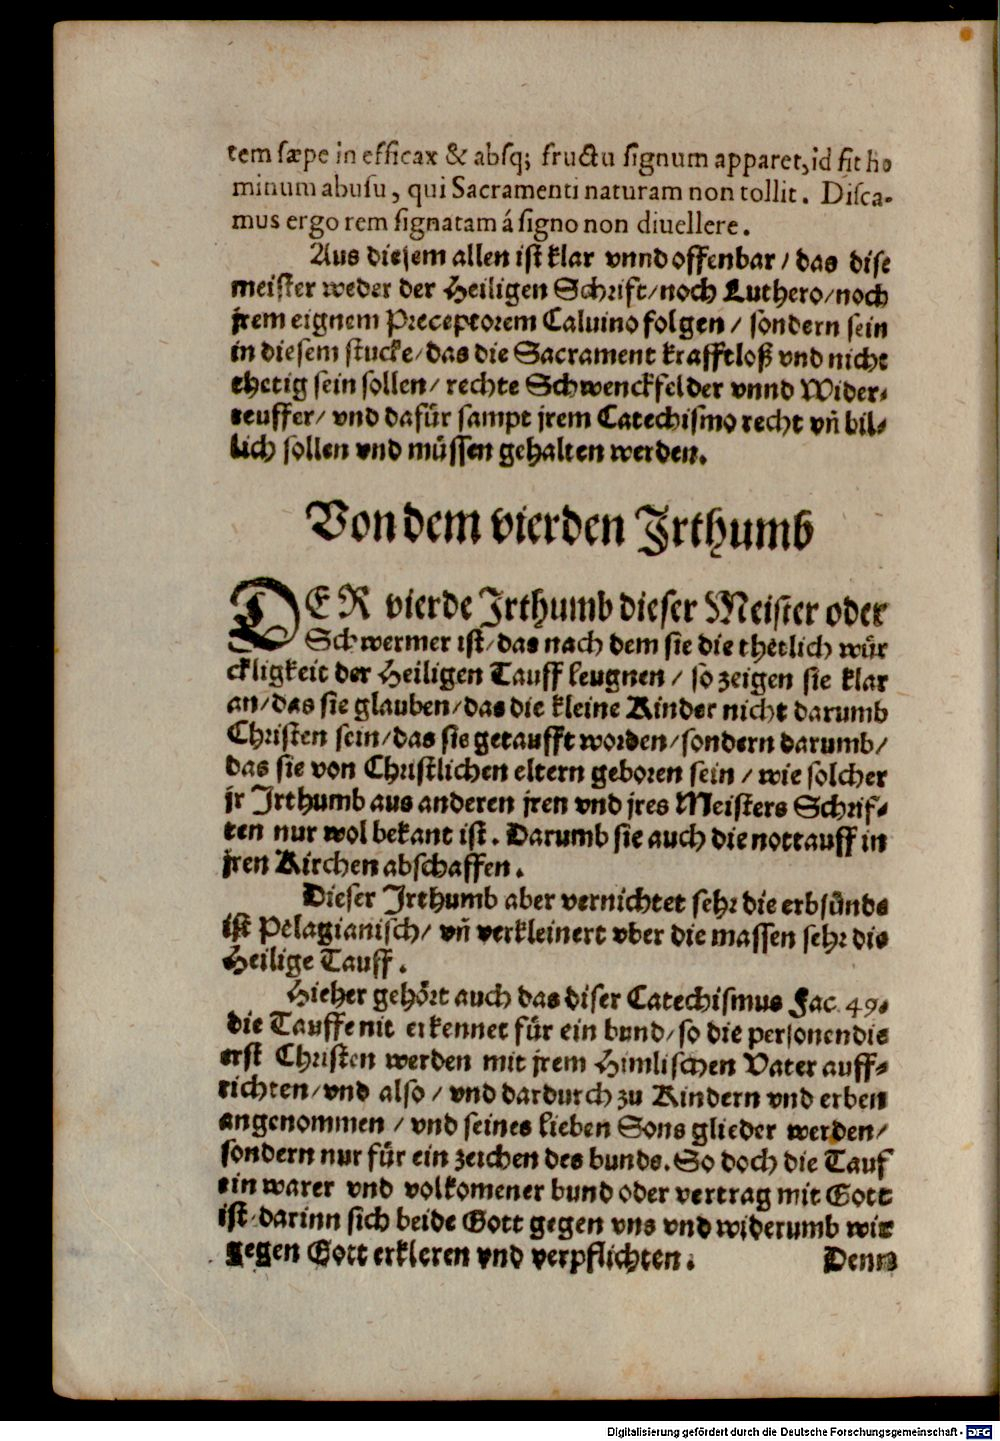 tem sæpe in efficax & absq; fructu signum apparet, id fit ho
minum abusu, qui Sacramenti naturam non tollit. Disca-
mus ergo rem signatam á signo non diuellere.
Aus diesem allen ist klar vnnd offenbar / das dise
meister weder der Heiligen Schrift/noch Luthero/noch
jrem eignem Preceptorem Caluino folgen / sondern sein
in diesem stucke/das die Sacrament krafftloß vnd nicht
thetig sein sollen/ rechte Schwenckfelder vnnd Wider-
teuffer/ vnd dafür sampt jrem Catechismo recht vñ bil-
lich sollen vnd müssen gehalten werden.
Von dem vierden Irthumb
DER vierde Irthumb dieser Meister oder
Schwermer ist/das nach dem sie die thetlich wür
ckligkeit der Heiligen Tauff leugnen / so zeigen sie klar
an/das sie glauben/das die kleine Kinder nicht darumb
Christen sein/das sie getaufft worden/sondern darumb/
das sie von Christlichen eltern geboren sein / wie solcher
jr Irthumb aus anderen jren vnd jres Meisters Schrif-
ten nur wol bekant ist. Darumb sie auch die nottauff in
jren Kirchen abschaffen.
Dieser Irthumb aber vernichtet sehr die erbsünde
ist Pelagianisch/ vñ verkleinert vber die massen sehr die
Heilige Tauff.
Hieher gehört auch das diser Catechismus Fac. 49.
die Tauffe nit erkennet für ein bund/so die personen die
erst Christen werden mit jrem Himlischen Vater auff-
richten/vnd also / vnd dardurch zu Kindern vnd erben
angenommen / vnd seines lieben Sons glieder werden/
sondern nur für ein zeichen des bunds. So doch die Tauf
ein warer vnd volkomener bund oder vertrag mit Gott
ist darinn sich beide Gott gegen vns vnd widerumb wir
gegen Gott erkleren vnd verpflichten. Denn
Digitalisierung gefördert durch die Deutsche Forschungsgemeinschaft - DFG